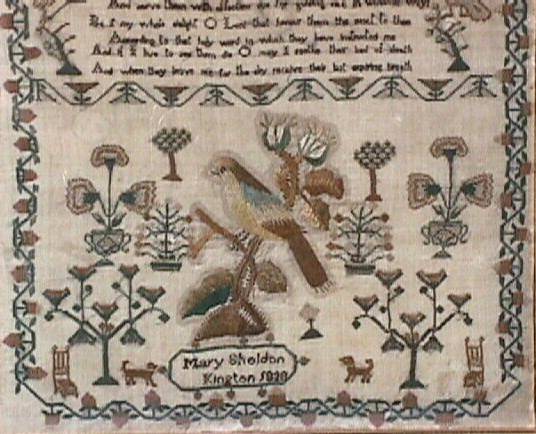 And serve them with affection due for guiding me in Wisdoms ways
Be it my whole delight O Lord that favour them the most to thee
According to that holy word in which they have instructed me
And if I live to see them die O may I soothe their bed of death
And when they leave me for the sky receive their last expiring breath
Mary Sheldon
Kington 1838